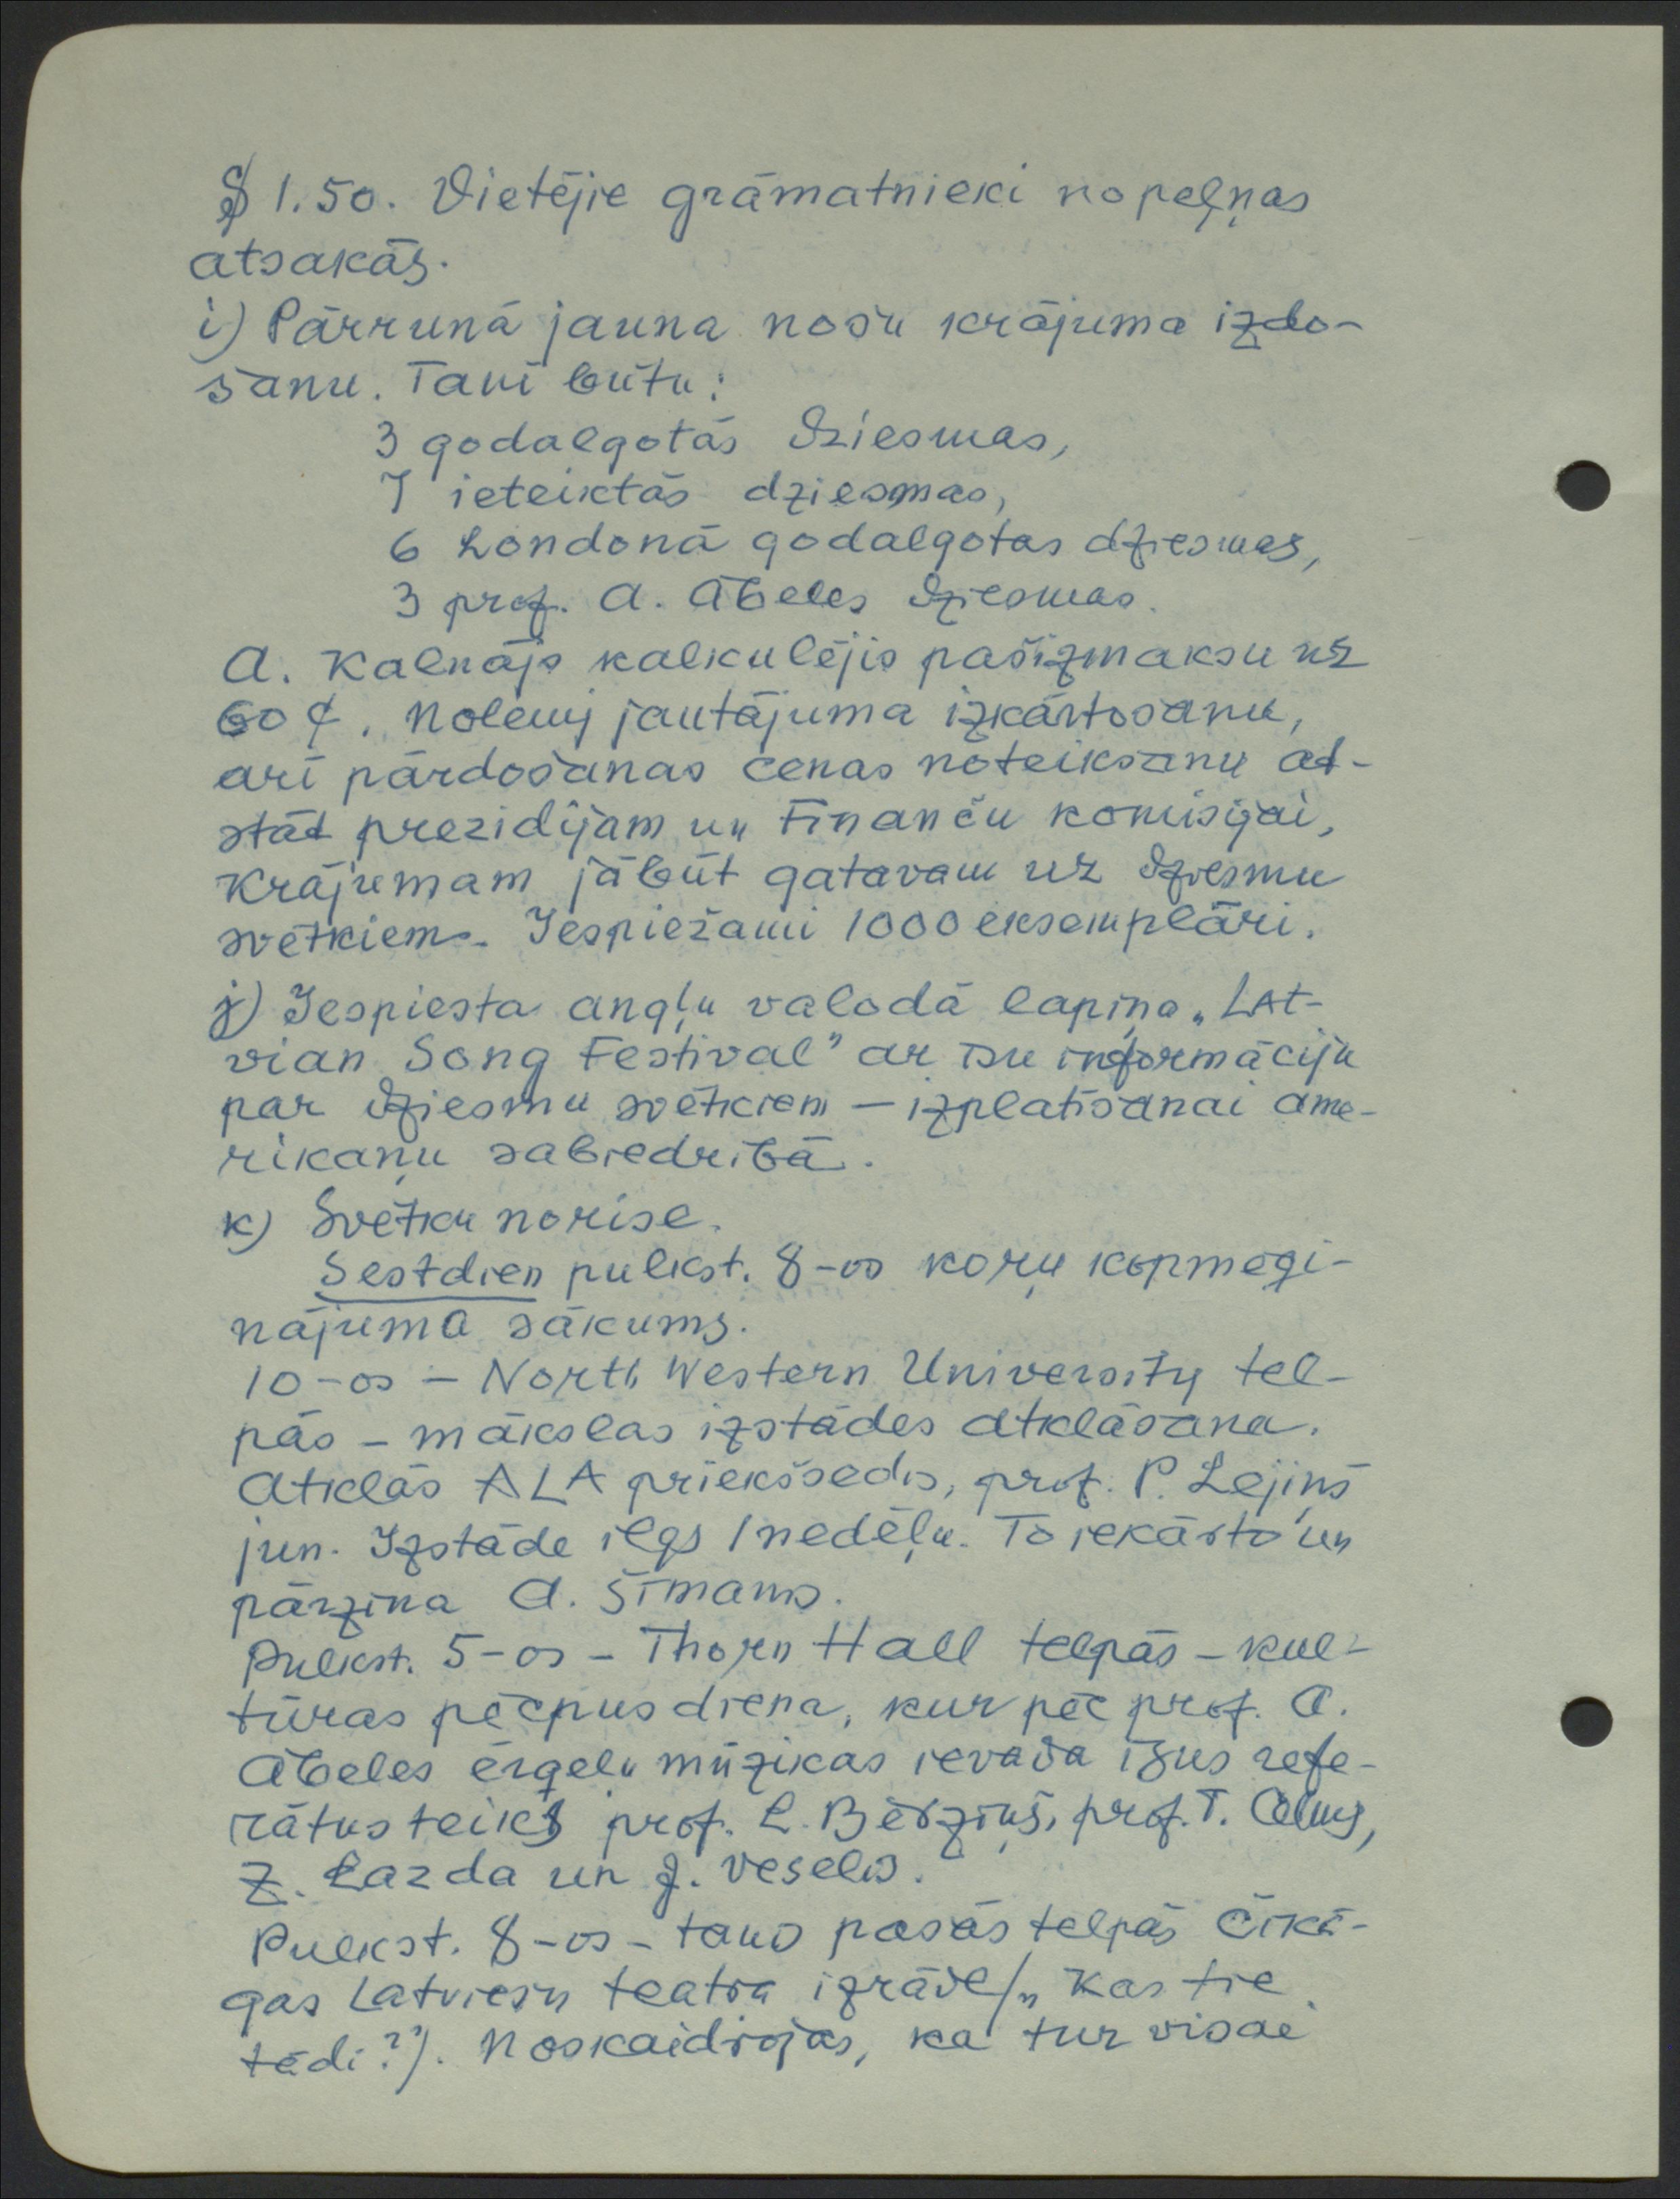 $ 1.50. Vietējie grāmatnieki no peļņas
atsakās.
i) Pārrunā jauna nošu krājuma izdo-
šanu. Tanī būtu:
3 godalgotās dziesmas,
7 ieteiktās dziesmas,
6 Londonā godalgotas dziesmas,
3 prof. A. Ābeles dziesmas.
A. Kalnājs kalkulējis pašizmaksu uz
60 ¢. Nolemj jautājuma izkārtošanu,
arī pārdošanas cenas noteikšanu at-
stāt prezidijam un Finanču komisijai,
Krājumam jābūt gatavam uz dziesmu
svētkiem. Iespiežami 1000 eksemplāri.
j) Iespiesta angļu valodā lapiņa „Lat-
vian Song Festival" ar īsu informāciju
par dziesmu svētkiem – izplatīšanai ame-
rikaņu sabiedrībā.
k) Svētku norise.
Sestdien pulkst. 8-os koŗu kopmēģi-
nājuma sākums.
10-os – North Western University tel-
pās – mākslas izstādes atklāšana.
Atklās ALA priekšsēdis, prof. P. Lejiņš
jun. Izstāde ilgs 1 nedēļu. To iekārto un
pārzina A. Šīmanis.
Pulkst. 5-os – Thorn Hall telpās – kul-
tūras pēcpusdiena, kur pēc prof. A.
Ābeles ērģeļu mūzikas ievada īsus refe-
rātus teiks prof. L. Bērziņš, prof. T. Celms,
Z. Lazda un J. Veselis.
Pulkst. 8-os – tanīs pašās telpās Čikā-
gas Latviešu teatra izrāde/„Kas tie
tādi?"/. Noskaidrojas, ka tur visai